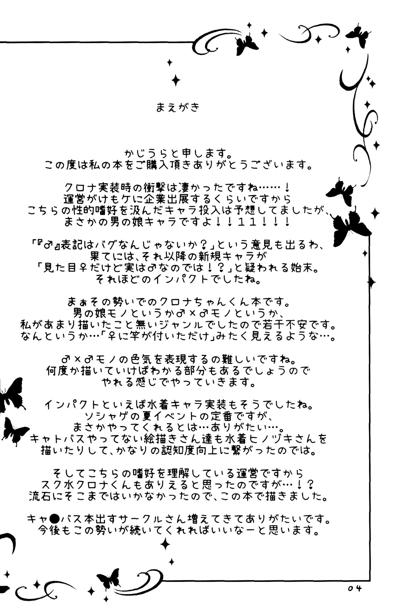 まえがき
かじうらと申します。
この度は私の本をご購入頂きありがとうございます。
クロナ実装時の衝撃は凄かったですね……！
運営がけもケに企業出展するくらいですから
こちらの性的嗜好を汲んだキャラ投入は予想してましたが、
まさかの男の娘キャラですよ！！！１１！！
「『♂』表記はバグなんじゃないか？」という意見も出るわ、
果てには、それ以降の新規キャラが
「見た目♀だけど実は♂なのでは！？」と疑われる始末。
それほどのインパクトでしたね。
まぁその勢いでのクロナちゃんくん本です。
男の娘モノというか♂×♂モノというか、
私があまり描いたこと無いジャンルでしたので若干不安です。
なんというか…「♀に竿が付いただけ」みたく見えるような…。
♂×♂モノの色気を表現するの難しいですね。
何度か描いていけばわかる部分もあるでしょうので
やれる感じでやっていきます。
インパクトといえば水着キャラ実装もそうでしたね。
ソシャゲの夏イベントの定番ですが、
まさかやってくれるとは…ありがたい…。
キャトバスやってない絵描きさん達も水着ヒノヅキさんを
描いたりして、かなりの認知度向上に繋がったのでは。
そしてこちらの嗜好を理解している運営ですから
スク水クロナくんもありえると思ったのですが…！？
流石にそこまではいかなかったので、この本で描きました。
キャ●バス本出すサークルさん増えてきてありがたいです。
今後もこの勢いが続いてくれればいいなーと思います。
04